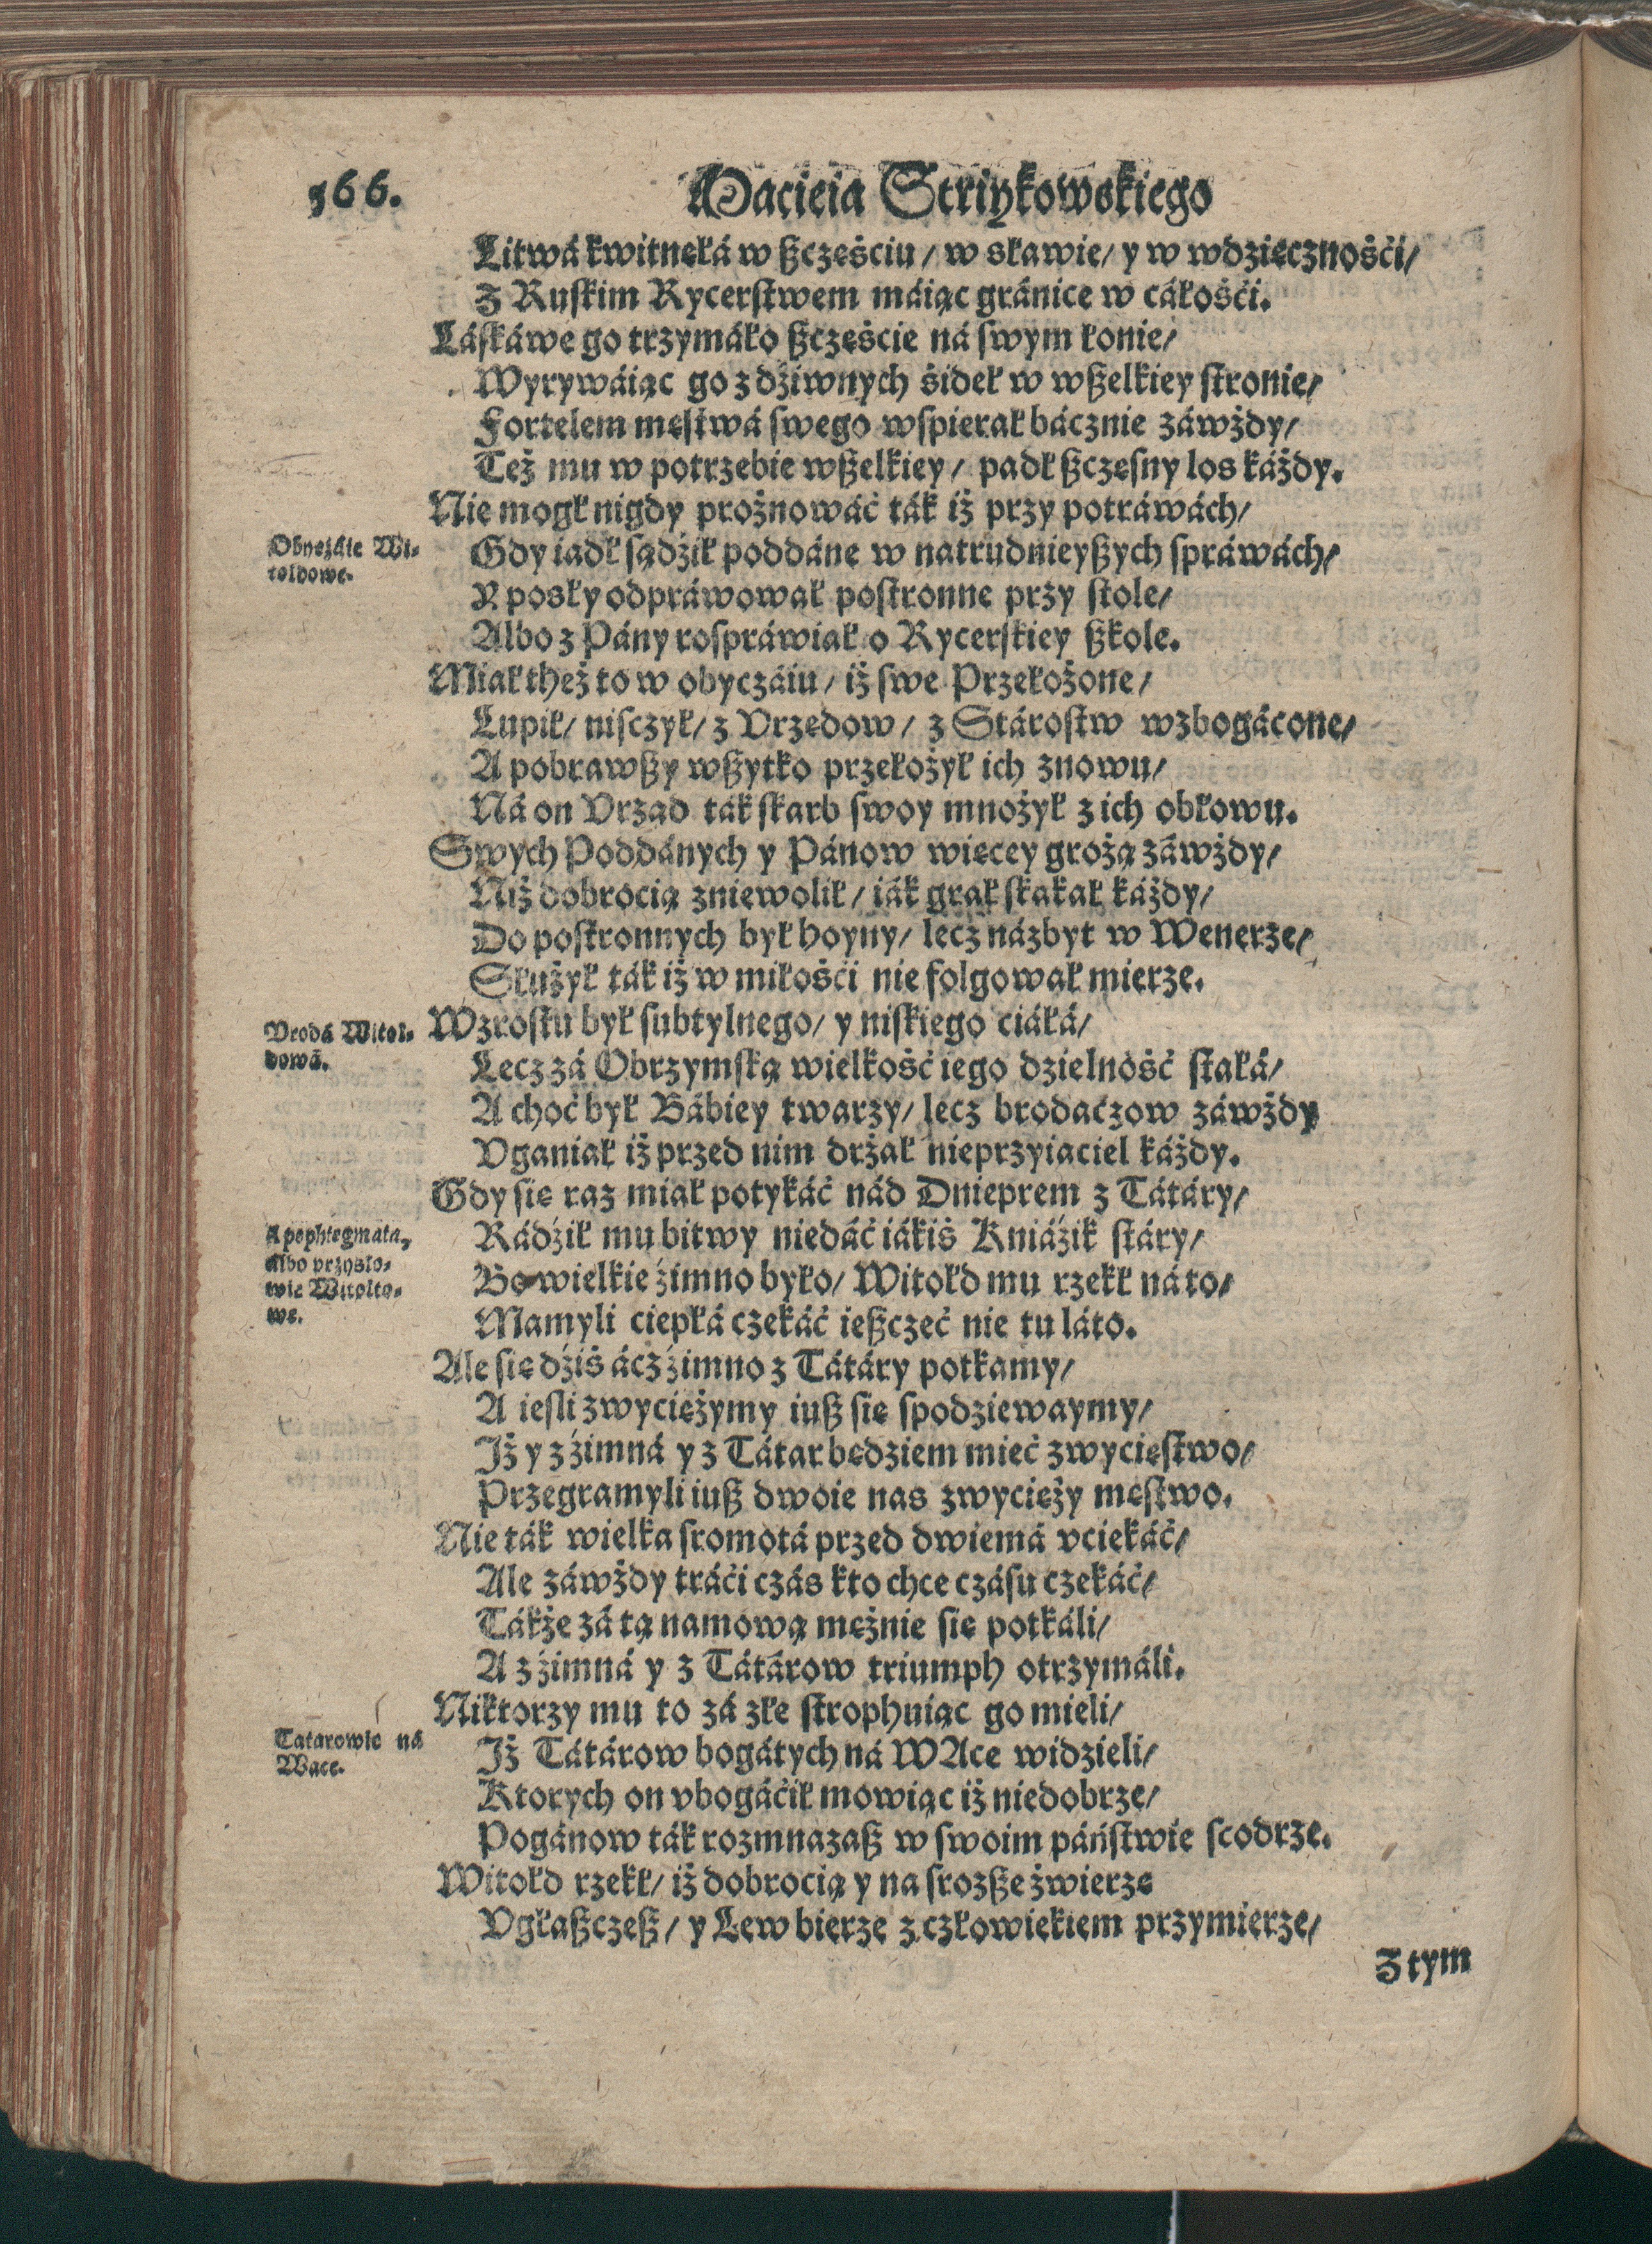 566.
Macieia Striykowskiego
Litwá kwitnęłá w sczęsciu / w sławie / y w wdzięcznośći /
Z Ruskim Rycerstwem máiąc gránice w cáłośći.
Láskáwe go trzymáło sczęście ná swym łonie /
Wyrywáiąc go z dźiwnych śideł w wszelkiey stronie /
Fortelem męstwá swego wspierał bácznie záwżdy /
Też mu w potrzebie wszelkiey / padł sczęsny los káżdy.
Nie mogł nigdy prożnowáć ták iż przy potráwách /
Obyczáie Wi-
toldowe.
Gdy iadł sądźił poddáne w natrudnieyszych spráwách /
Y posły odpráwował postronne przy stole /
Albo z Pány rospráwiał o Rycerskiey szkole.
Miał theż to w obyczáiu / iż swe Przełożone /
Lupił / nisczył / z Vrzędow / z Stárostw wzbogácone /
A pobrawszy wszytko przełożył ich znowu /
Ná on Vrząd ták skarb swoy mnożył z ich obłowu.
Swych Poddánych y Pánow więcey grożą záwżdy /
Niż dobrocią zniewolił / iák grał skakał káżdy /
Do postronnych był hoyny / lecz názbyt w Wenerze /
Służył ták iż w miłośći nie folgował mierze.
Vrodá Witol-
dowá.
Wzrostu był subtylnego / y niskiego ciáłá /
Lecz zá Obrzymską wielkość iego dzielność stałá /
A choć był Bábiey twarzy / lecz brodaczow záwżdy
Vganiał iż przed nim drżał nieprzyiaciel káżdy.
Gdy się raz miał potykáć nád Dnieprem z Tátáry /
Apophtegmata,
albo przysło-
wie Witolto-
we.
Rádźił mu bitwy niedáć iákiś Kniáźik stáry /
Bo wielkie źimno było / Witołd mu rzekł ná to /
Mamyli ciepłá czekáć ieszczeć nie tu láto.
Ale się dźiś ácz źimno z Tátáry potkamy /
A iesli zwyciężymy iusz się spodziewaymy /
Iż y z źimná y z Tátar będziem mieć zwycięstwo /
Przegramyli iusz dwoie nas zwycięży męstwo.
Nie ták wielka sromotá przed dwiemá vciekáć /
Ale záwżdy tráći czás kto chce czásu czekáć /
Tákże zá tą namową mężnie się potkáli /
A z źimná y z Tátárow triumph otrzymáli.
Niktorzy mu to zá złe strophuiąc go mieli /
Tatarowie ná
Wace.
Iż Tátárow bogátych ná WAce widzieli /
Ktorych on vbogáćił mowiąc iż niedobrze /
Pogánow ták rozmnazasz w swoim páństwie scodrze.
Witołd rzekł / iż dobrocią y na srozsze źwierze
Vgłaszczesz / y Lew bierze z człowiekiem przymierze /
Z tym